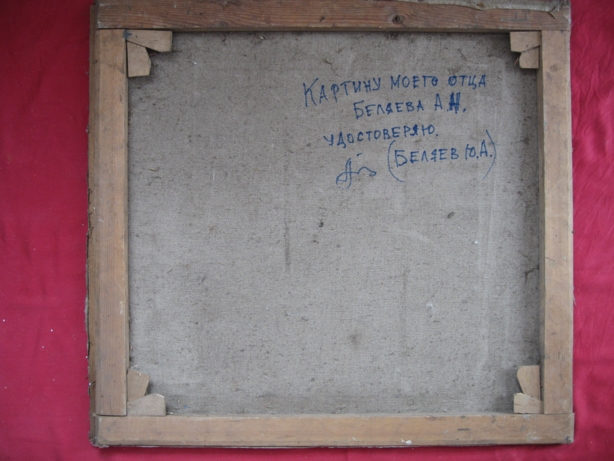 Картину моего отца
Беляева А.Н.
удостоверяю.
(Беляев Ю.А.)